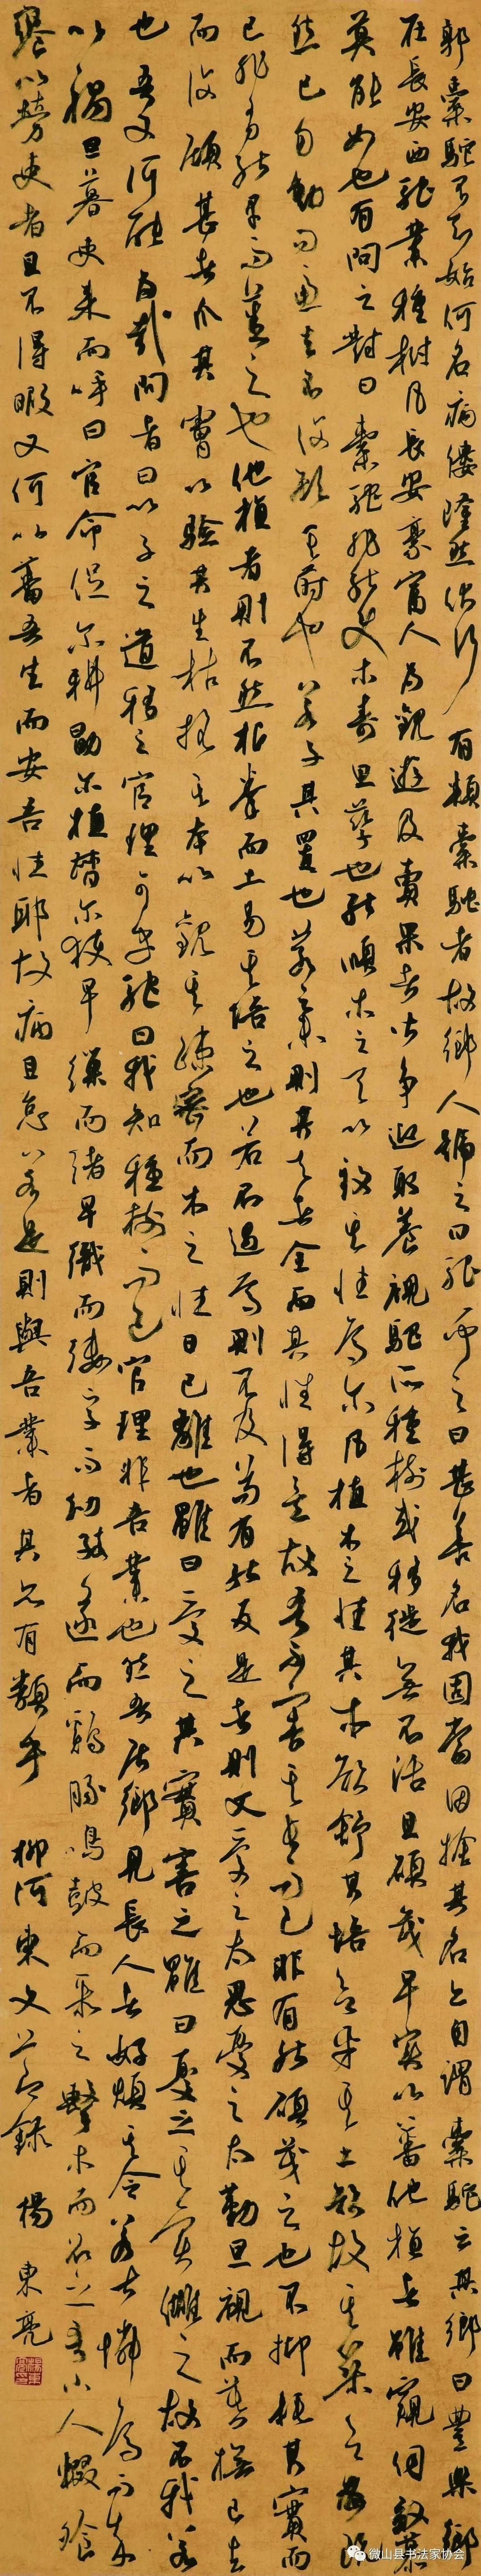 郭橐駝不知始何名病僂隆然伏行有類橐駝者故鄉人號之曰駝駝聞之曰甚善名我固當因捨其名亦自謂橐駝云其鄉曰豐樂鄉
在長安西駝業種樹凡長安豪富人為觀遊及賣果者皆爭迎取養視駝所種樹或移徙無不活且碩茂早實以蕃他植者雖窺伺效慕
莫能如也有問之對曰橐駝非能使木壽且孳也能順木之天以致其性焉爾凡植木之性其本欲舒其培欲平其土欲故其築欲密既
然已勿動勿慮去不復顧其蒔也若子其置也若棄則其天者全而其性得矣故吾不害其長而已非有能碩茂之也不抑耗其實而
已非有能早而蕃之也他植者則不然根拳而土易其培之也若不過焉則不及苟有能反是者則又愛之太恩憂之太勤旦視而暮撫已去
而復顧甚者爪其膚以驗其生枯搖其本以觀其疎密而木之性日已離也雖曰愛之其實害之雖曰憂之其實讎之故不我若
也吾又何能為哉問者曰以子之道移之官理可乎駝曰我知種樹而已官理非吾業也然吾居鄉見長人者好煩其令若甚憐焉而卒
以禍旦暮吏來而呼曰官命促爾耕勖爾植督爾獲早繅而緒早織而縷字而幼孩遂而雞豚鳴鼓而聚之擊木而召之吾小人輟飧
饔以勞吏者且不得暇又何以蕃吾生而安吾性耶故病且怠若是則與吾業者其亦有類乎 柳河東文節錄 楊東亮
微山县书法家协会